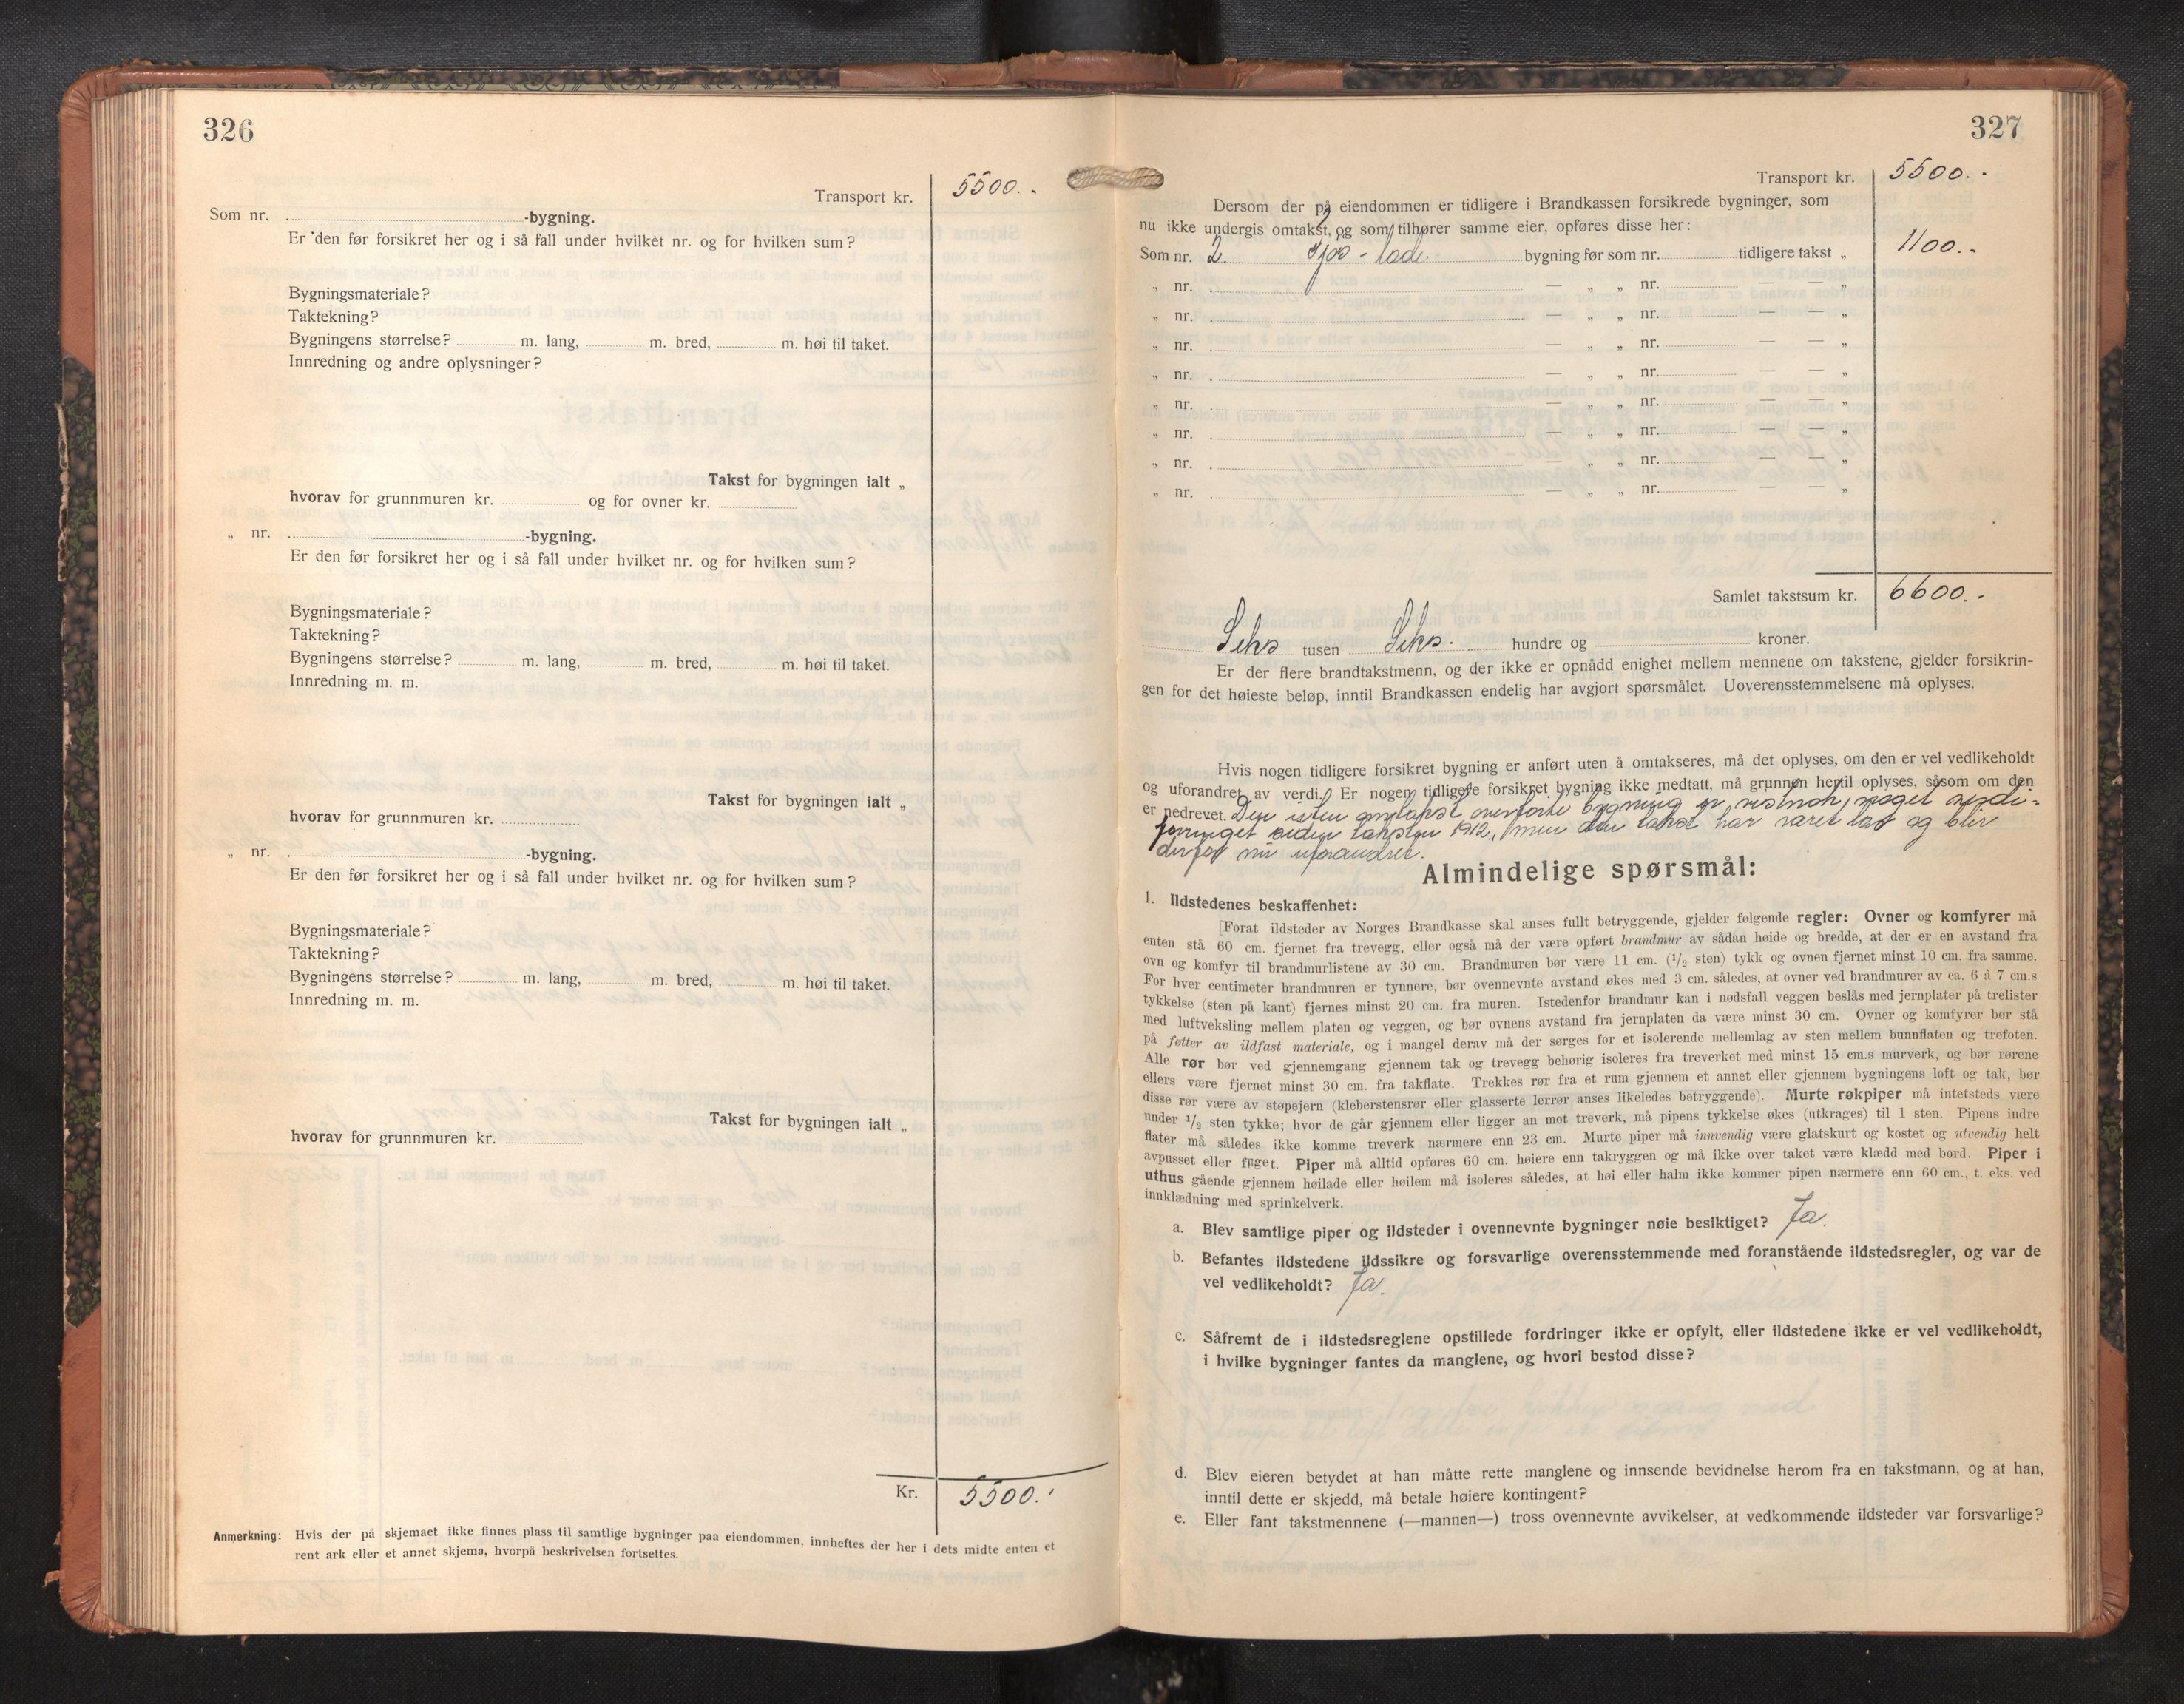 326
Transport kr. 5500.-
Som nr. -bygning.
Er den før forsikret her og i så fall under hvilket nr. og for hvilken sum?
Bygningsmateriale?
Taktekning?
Bygningens størrelse? m. lang, m. bred, m. høi til taket.
Innredning og andre oplysninger?
Takst for bygningen ialt „
hvorav for grunnmuren kr. og for ovner kr.
„ nr. -bygning.
Er den før forsikret her og i så fall under hvilket nr. og for hvilken sum?
Bygningsmateriale?
Taktekning?
Bygningens størrelse? m. lang, m. bred, m. høi til taket.
Innredning m. m.
Takst for bygningen ialt „
hvorav for grunnmuren kr.
„ nr. -bygning.
Er den før forsikret her og i så fall under hvilket nr. og for hvilken sum?
Bygningsmateriale?
Taktekning?
Bygningens størrelse? m. lang, m. bred, m. høi til taket.
Innredning m. m.
Takst for bygningen ialt „
hvorav for grunnmuren kr.
Kr. 5500.-
Anmerkning: Hvis der på skjemaet ikke finnes plass til samtlige bygninger paa eiendommen, innheftes der her i dets midte enten et
rent ark eller et annet skjema, hvorpå beskrivelsen fortsettes.
327
Transport kr. 5500.-
Dersom der på eiendommen er tidligere i Brandkassen forsikrede bygninger, som
nu ikke undergis omtakst, og som tilhører samme eier, opføres disse her:
Som nr. 2. Fjøs-lade. bygning før som nr. tidligere takst „ 1100.-
„ nr. — „ „ nr. — — „
„ nr. — „ „ nr. — — „
„ nr. — „ „ nr. — — „
„ nr. — „ „ nr. — — „
„ nr. — „ „ nr. — — „
„ nr. — „ „ nr. — — „
„ nr. — „ „ nr. — — „
„ nr. — „ „ nr. — — „
Samlet takstsum kr. 6600.-
Seks tusen Seks. hundre og kroner.
Er der flere brandtakstmenn, og der ikke er opnådd enighet mellem mennene om takstene, gjelder forsikrin-
gen for det høieste beløp, inntil Brandkassen endelig har avgjort spørsmålet. Uoverensstemmelsene må oplyses.
Hvis nogen tidligere forsikret bygning er anført uten å omtakseres, må det oplyses, om den er vel vedlikeholdt
og uforandret av verdi. Er nogen tidligere forsikret bygning ikke medtatt, må grunnen hertil oplyses, såsom om den
er nedrevet. Den uten omtakst overførte bygning er vistnok noget verdi-
forringet siden taksten 1912, men den takst har været lav og blir
derfor nu uforandret.
Almindelige spørsmål:
1. Ildstedenes beskaffenhet:
[Forat ildsteder av Norges Brandkasse skal anses fullt betryggende, gjelder følgende regler: Ovner og komfyrer må
enten stå 60 cm. fjernet fra trevegg, eller også må der være opført brandmur av sådan høide og bredde, at der er en avstand fra
ovn og komfyr til brandmurlistene av 30 cm. Brandmuren bør være 11 cm. (1/2 sten) tykk og ovnen fjernet minst 10 cm. fra samme.
For hver centimeter brandmuren er tynnere, bør ovennevnte avstand økes med 3 cm. således, at ovner ved brandmurer av ca. 6 à 7 cm.s
tykkelse (sten på kant) fjernes minst 20 cm. fra muren. Istedenfor brandmur kan i nødsfall veggen beslås med jernplater på trelister
med luftveksling mellem platen og veggen, og bør ovnens avstand fra jernplaten da være minst 30 cm. Ovner og komfyrer bør stå
på føtter av ildfast materiale, og i mangel derav må der sørges for et isolerende mellemlag av sten mellem bunnflaten og trefoten.
Alle rør bør ved gjennemgang gjennem tak og trevegg behørig isoleres fra treverket med minst 15 cm.s murverk, og bør rørene
ellers være fjernet minst 30 cm. fra takflate. Trekkes rør fra et rum gjennem et annet eller gjennem bygningens loft og tak, bør
disse rør være av støpejern (kleberstensrør eller glasserte lerrør anses likeledes betryggende). Murte røkpiper må intetsteds være
under 1/2 sten tykke; hvor de går gjennem eller ligger an mot treverk, må pipens tykkelse økes (utkrages) til 1 sten. Pipens indre
flater må således ikke komme treverk nærmere enn 23 cm. Murte piper må innvendig være glatskurt og kostet og utvendig helt
avpusset eller fuget. Piper må alltid opføres 60 cm. høiere enn takryggen og må ikke over taket være klædd med bord. Piper i
uthus gående gjennem høilade eller høilem må isoleres således, at høi eller halm ikke kommer pipen nærmere enn 60 cm., t. eks. ved
innklædning med sprinkelverk.
a. Blev samtlige piper og ildsteder i ovennevnte bygninger nøie besiktiget? Ja.
b. Befantes ildstedene ildssikre og forsvarlige overensstemmende med foranstående ildstedsregler, og var de
vel vedlikeholdt? Ja.
c. Såfremt de i ildstedsreglene opstillede fordringer ikke er opfylt, eller ildstedene ikke er vel vedlikeholdt,
i hvilke bygninger fantes da manglene, og hvori bestod disse?
d. Blev eieren betydet at han måtte rette manglene og innsende bevidnelse herom fra en takstmann, og at han,
inntil dette er skjedd, må betale høiere kontingent?
e. Eller fant takstmennene (—mannen—) tross ovennevnte avvikelser, at vedkommende ildsteder var forsvarlige?